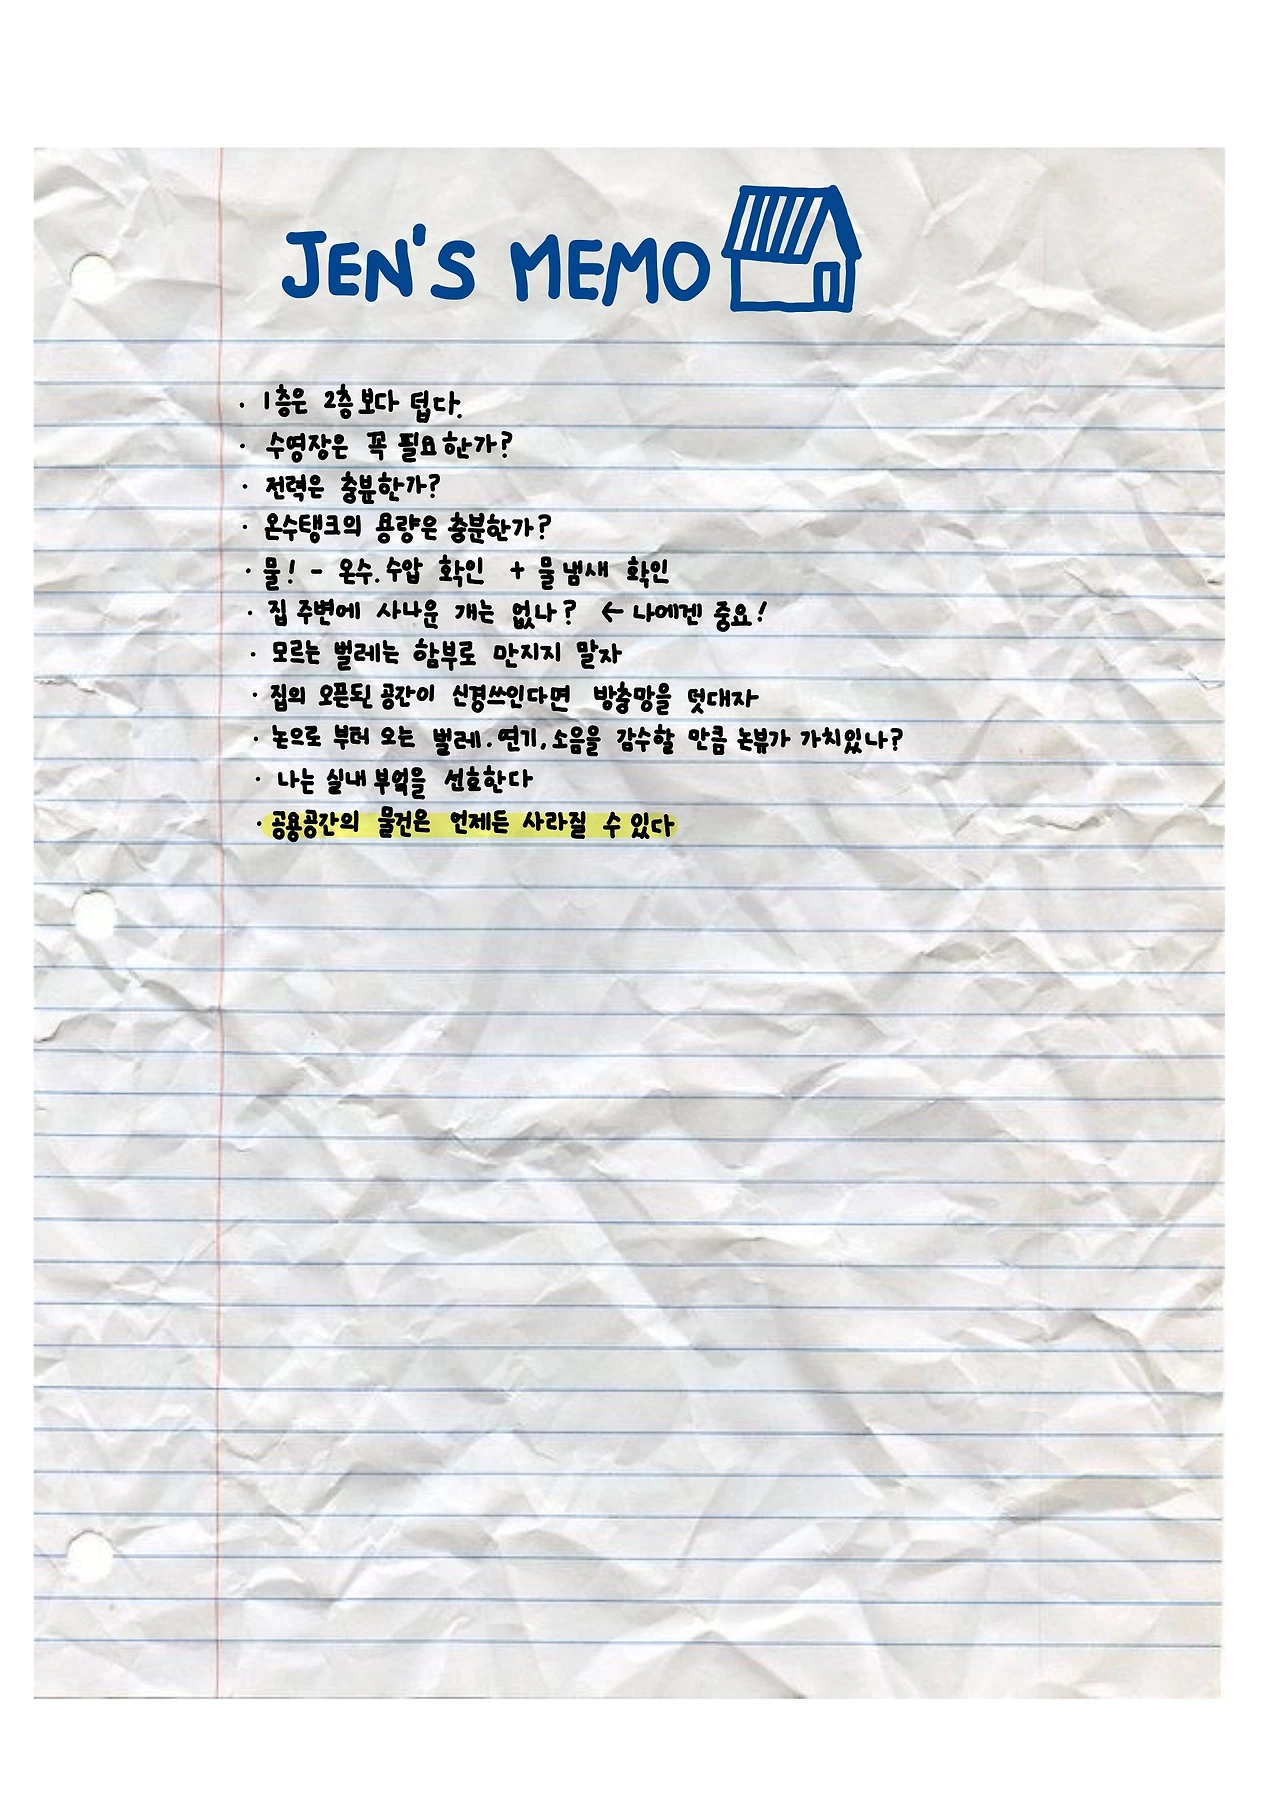 JEN'S MEMO
· 1층은 2층보다 덥다.
· 수영장은 꼭 필요한가?
· 전력은 충분한가?
· 온수탱크의 용량은 충분한가?
· 물! - 온수.수압 확인 + 물냄새 확인
· 집 주변에 사나운 개는 없나? ← 나에겐 중요!
· 모르는 벌레는 함부로 만지지 말자
· 집의 오픈된 공간이 신경쓰인다면 방충망을 덧대자
· 논으로 부터 오는 벌레.연기,소음을 감수할 만큼 논뷰가 가치있나?
· 나는 실내부엌을 선호한다
· 공용공간의 물건은 언제든 사라질 수 있다